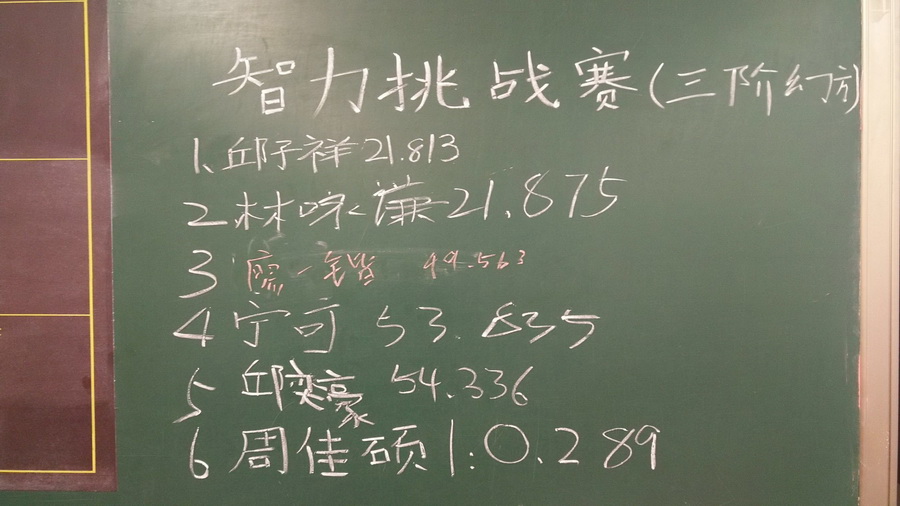 智力挑战赛(三阶幻方)
1、邱子祥21.813
2 林咏谦21.875
3 廖一锴 49.563
4 宁可 53.835
5 邱奕豪 54.336
6 周佳硕 1:0.289